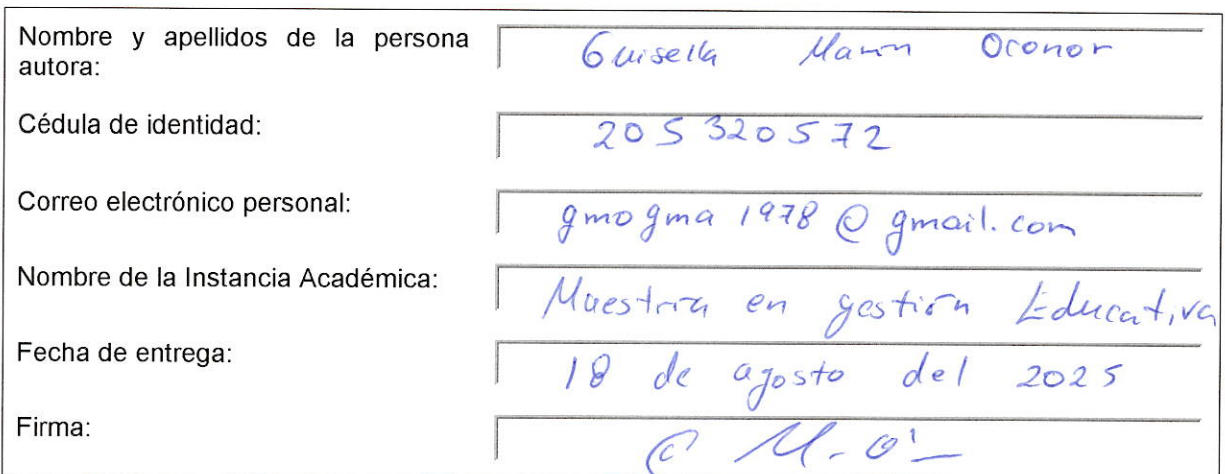 Nombre y apellidos de la persona autora: Guisella Marin Oconor
Cédula de identidad: 205320572
Correo electrónico personal: gmogma1978@gmail.com
Nombre de la Instancia Académica: Maestria en gestión Educativa
Fecha de entrega: 18 de agosto del 2025
Firma: